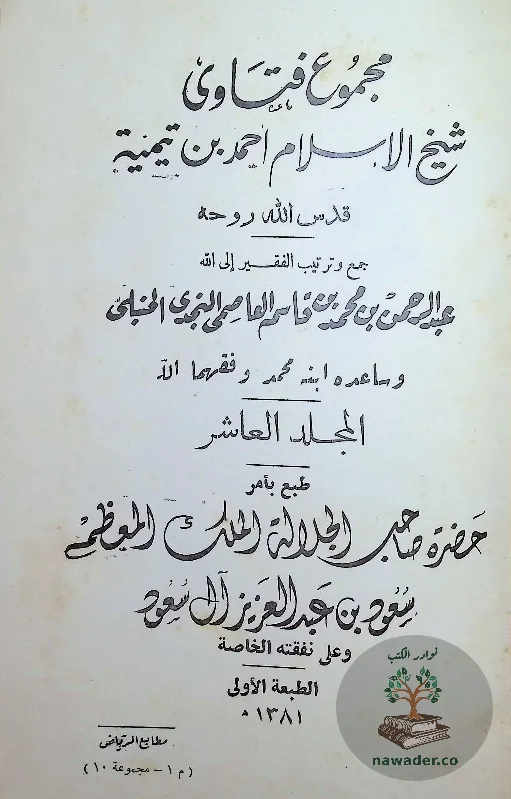 مجموع فتاوى
شيخ الإسلام أحمد بن تيمية
قدس الله روحه
جمع وترتيب الفقير إلى الله
عبد الرحمن بن محمد بن قاسم العاصمي النجدي الحنبلي
وساعده ابنه محمد وفقهما الله
المجلد العاشر
طبع بأمر
حضرة صاحب الجلالة الملك المعظم
سعود بن عبد العزيز آل سعود
وعلى نفقته الخاصة
الطبعة الأولى
١٣٨١ ه
مطابع الرياض
(م ١ – مجموعة ١٠)
نوادر الكتب
nawader.co